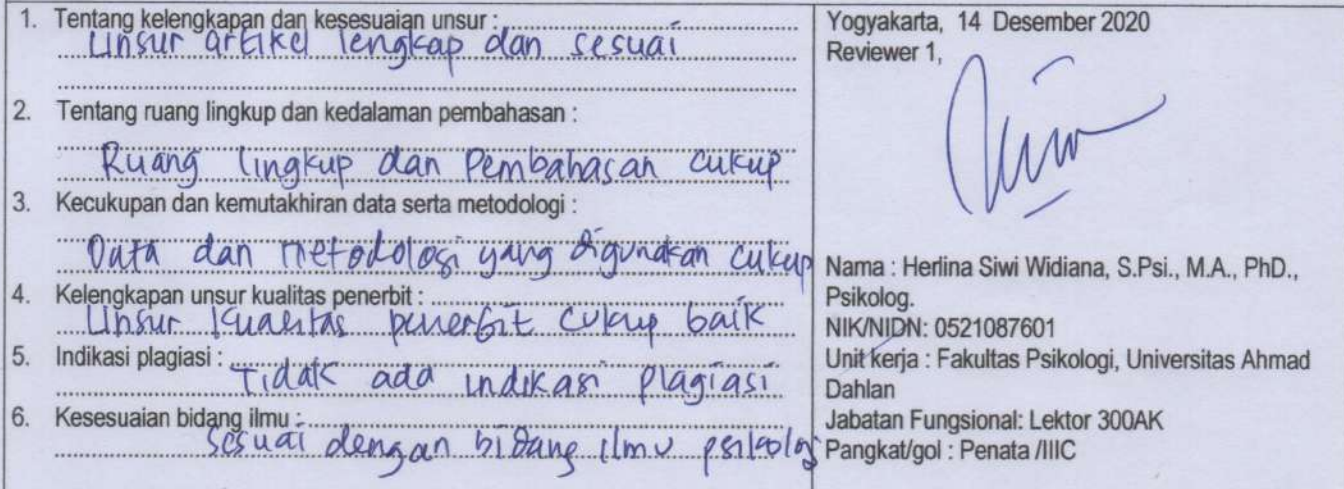 1. Tentang kelengkapan dan kesesuaian unsur :
Unsur artikel lengkap dan sesuai
2. Tentang ruang lingkup dan kedalaman pembahasan :
Ruang lingkup dan Pembahasan cukup
3. Kecukupan dan kemutakhiran data serta metodologi :
Data dan metodologi yang digunakan cukup
4. Kelengkapan unsur kualitas penerbit :
Unsur kualitas penerbit cukup baik
5. Indikasi plagiasi :
Tidak ada indikasi plagiasi
6. Kesesuaian bidang ilmu :
Sesuai dengan bidang ilmu psikolog
Yogyakarta, 14 Desember 2020
Reviewer 1,
Nama : Herlina Siwi Widiana, S.Psi., M.A., PhD.,
Psikolog.
NIK/NIDN: 0521087601
Unit kerja : Fakultas Psikologi, Universitas Ahmad
Dahlan
Jabatan Fungsional: Lektor 300AK
Pangkat/gol : Penata /IIIC